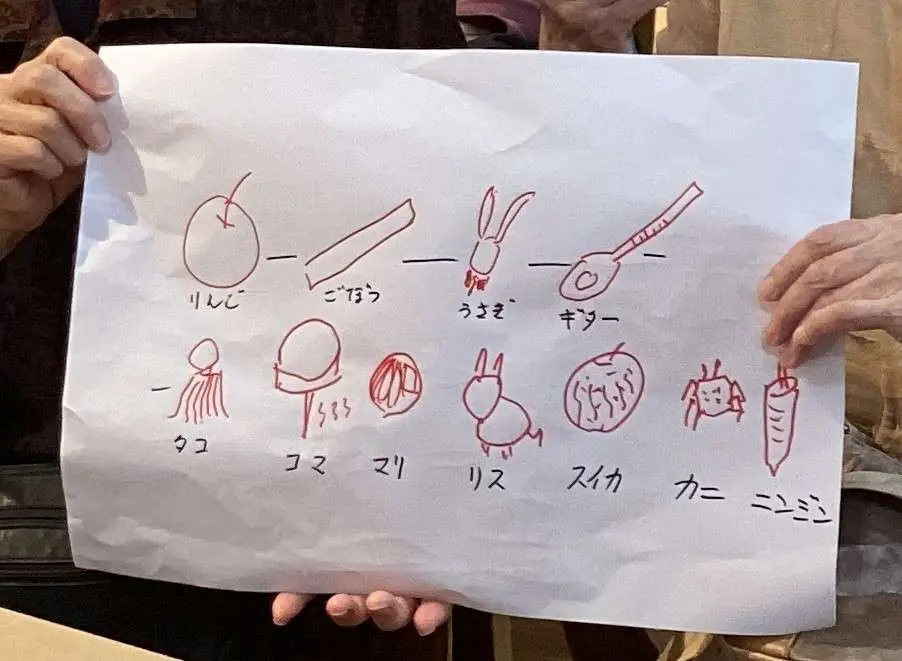 りんご ごぼう うさぎ ギター
タコ コマ マリ リス スイカ カニ ニンジン